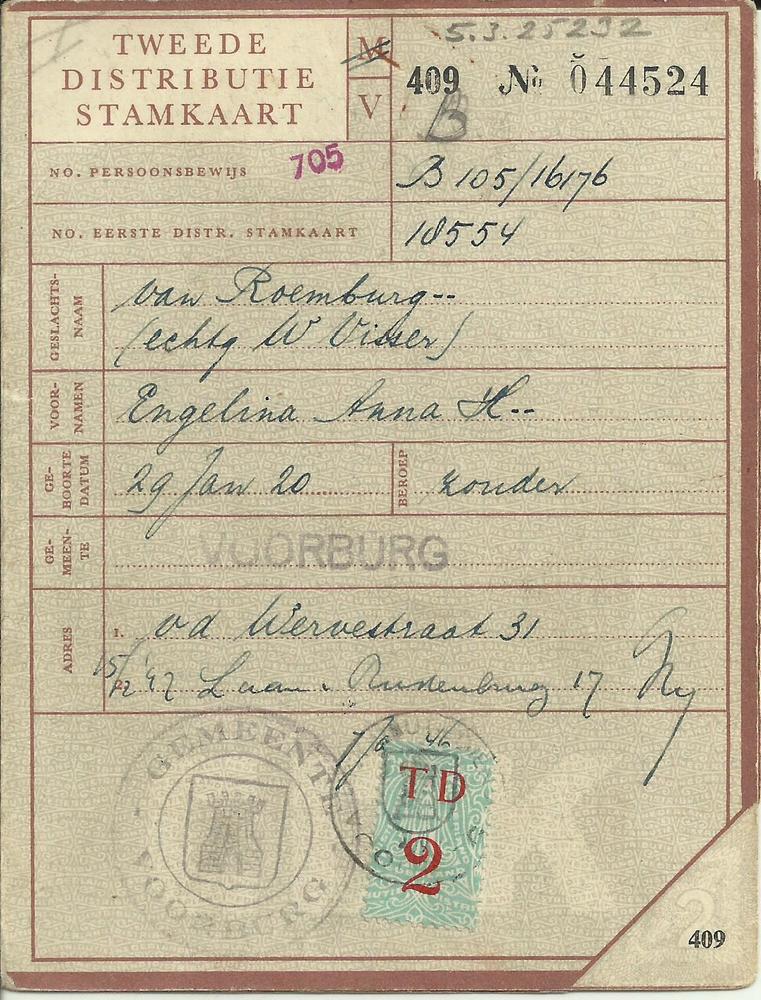 5.3.25232
TWEEDE
DISTRIBUTIE
STAMKAART
M
V
409 No 044524
B
NO. PERSOONSBEWIJS
705
B 105/16176
NO. EERSTE DISTR. STAMKAART
18554
GESLACHTS-
NAAM
van Roemburg--
(echtg W Visser)
VOOR-
NAMEN
Engelina Anna H--
GE-
BOORTE
DATUM
29 Jan 20
BEROEP
zonder
GE-
MEEN-
TE
VOORBURG
ADRES
1. vd Wervestraat 31
2. 15/12 '47 Laan v Rustenburg 17
GEMEENTE
VOORBURG
TD
2
409